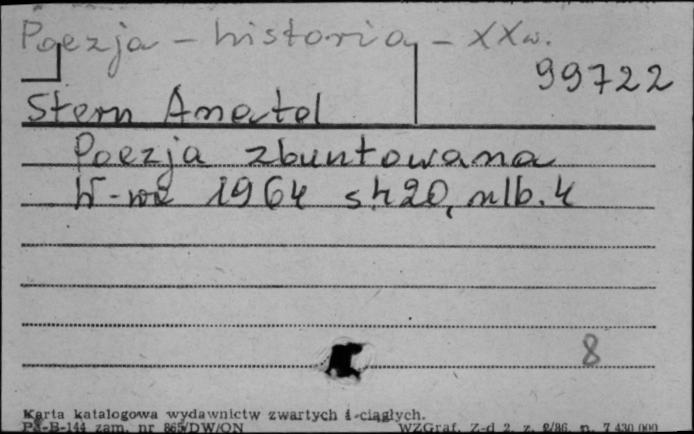 Poezja - historia - XX w.
99722
Stern Anatol
Poezja zbuntowana
W-wa 1964 s 420, nlb. 4
8
Karta katalogowa wydawnictw zwartych i ciągłych.
Pu-B-144 zam. nr 865/DW/ON WZGraf. Z-d 2. z. 2/86. n. 7 430 000